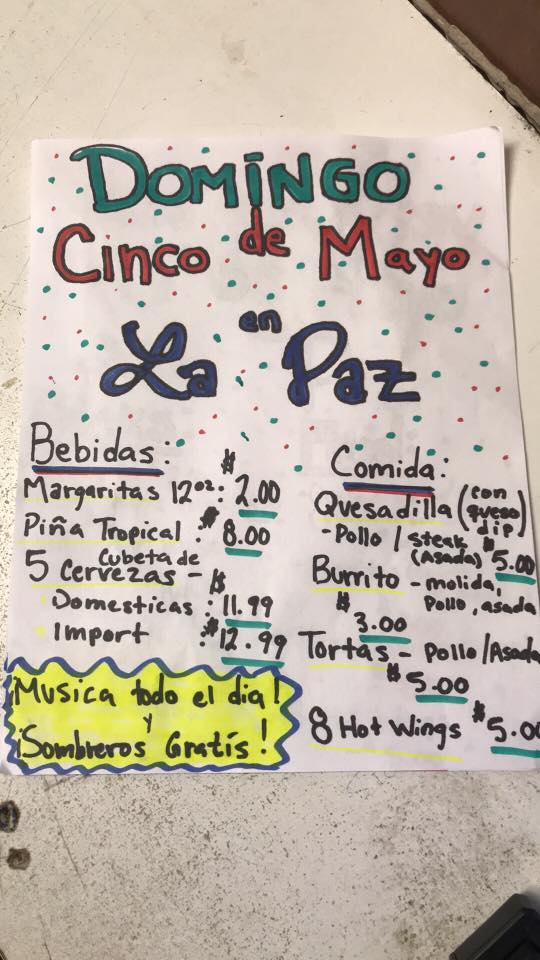 DOMINGO
Cinco de Mayo
en
La Paz
Bebidas:
Margaritas 12oz: $2.00
Piña Tropical: $8.00
5 Cubeta de
Cervezas - $
Domesticas: 11.99
Import : $12.99
Comida:
Quesadilla (con queso dip)
-Pollo / steak (Asada) $5.00
Burrito - molida,
Pollo, asada
$3.00
Tortas - Pollo/Asada
$5.00
8 Hot Wings $5.00
¡Musica todo el dia!
y
¡Sombreros Gratis!